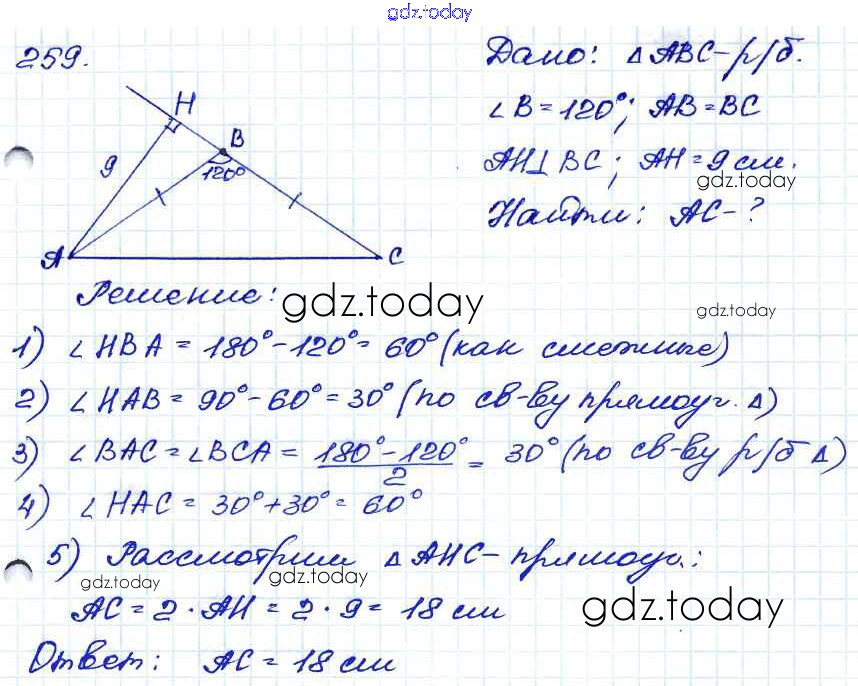 gdz.today
259.
Дано: △ABC-р/б.
∠B=120°; AB=BC
AH⊥BC; AH=9 см.
gdz.today
Найти: AC-?
H
B
9
120°
A
C
Решение:
gdz.today
gdz.today
1) ∠HBA = 180°-120°= 60° (как смежные)
2) ∠HAB = 90°-60°= 30° (по св-ву прямоуг. △)
3) ∠BAC = ∠BCA = (180°-120°)/2 = 30° (по св-ву р/б △)
4) ∠HAC = 30°+30°= 60°
5) Рассмотрим △AHC-прямоуг.:
gdz.today
gdz.today
AC = 2·AH = 2·9 = 18 см
gdz.today
Ответ: AC = 18 см